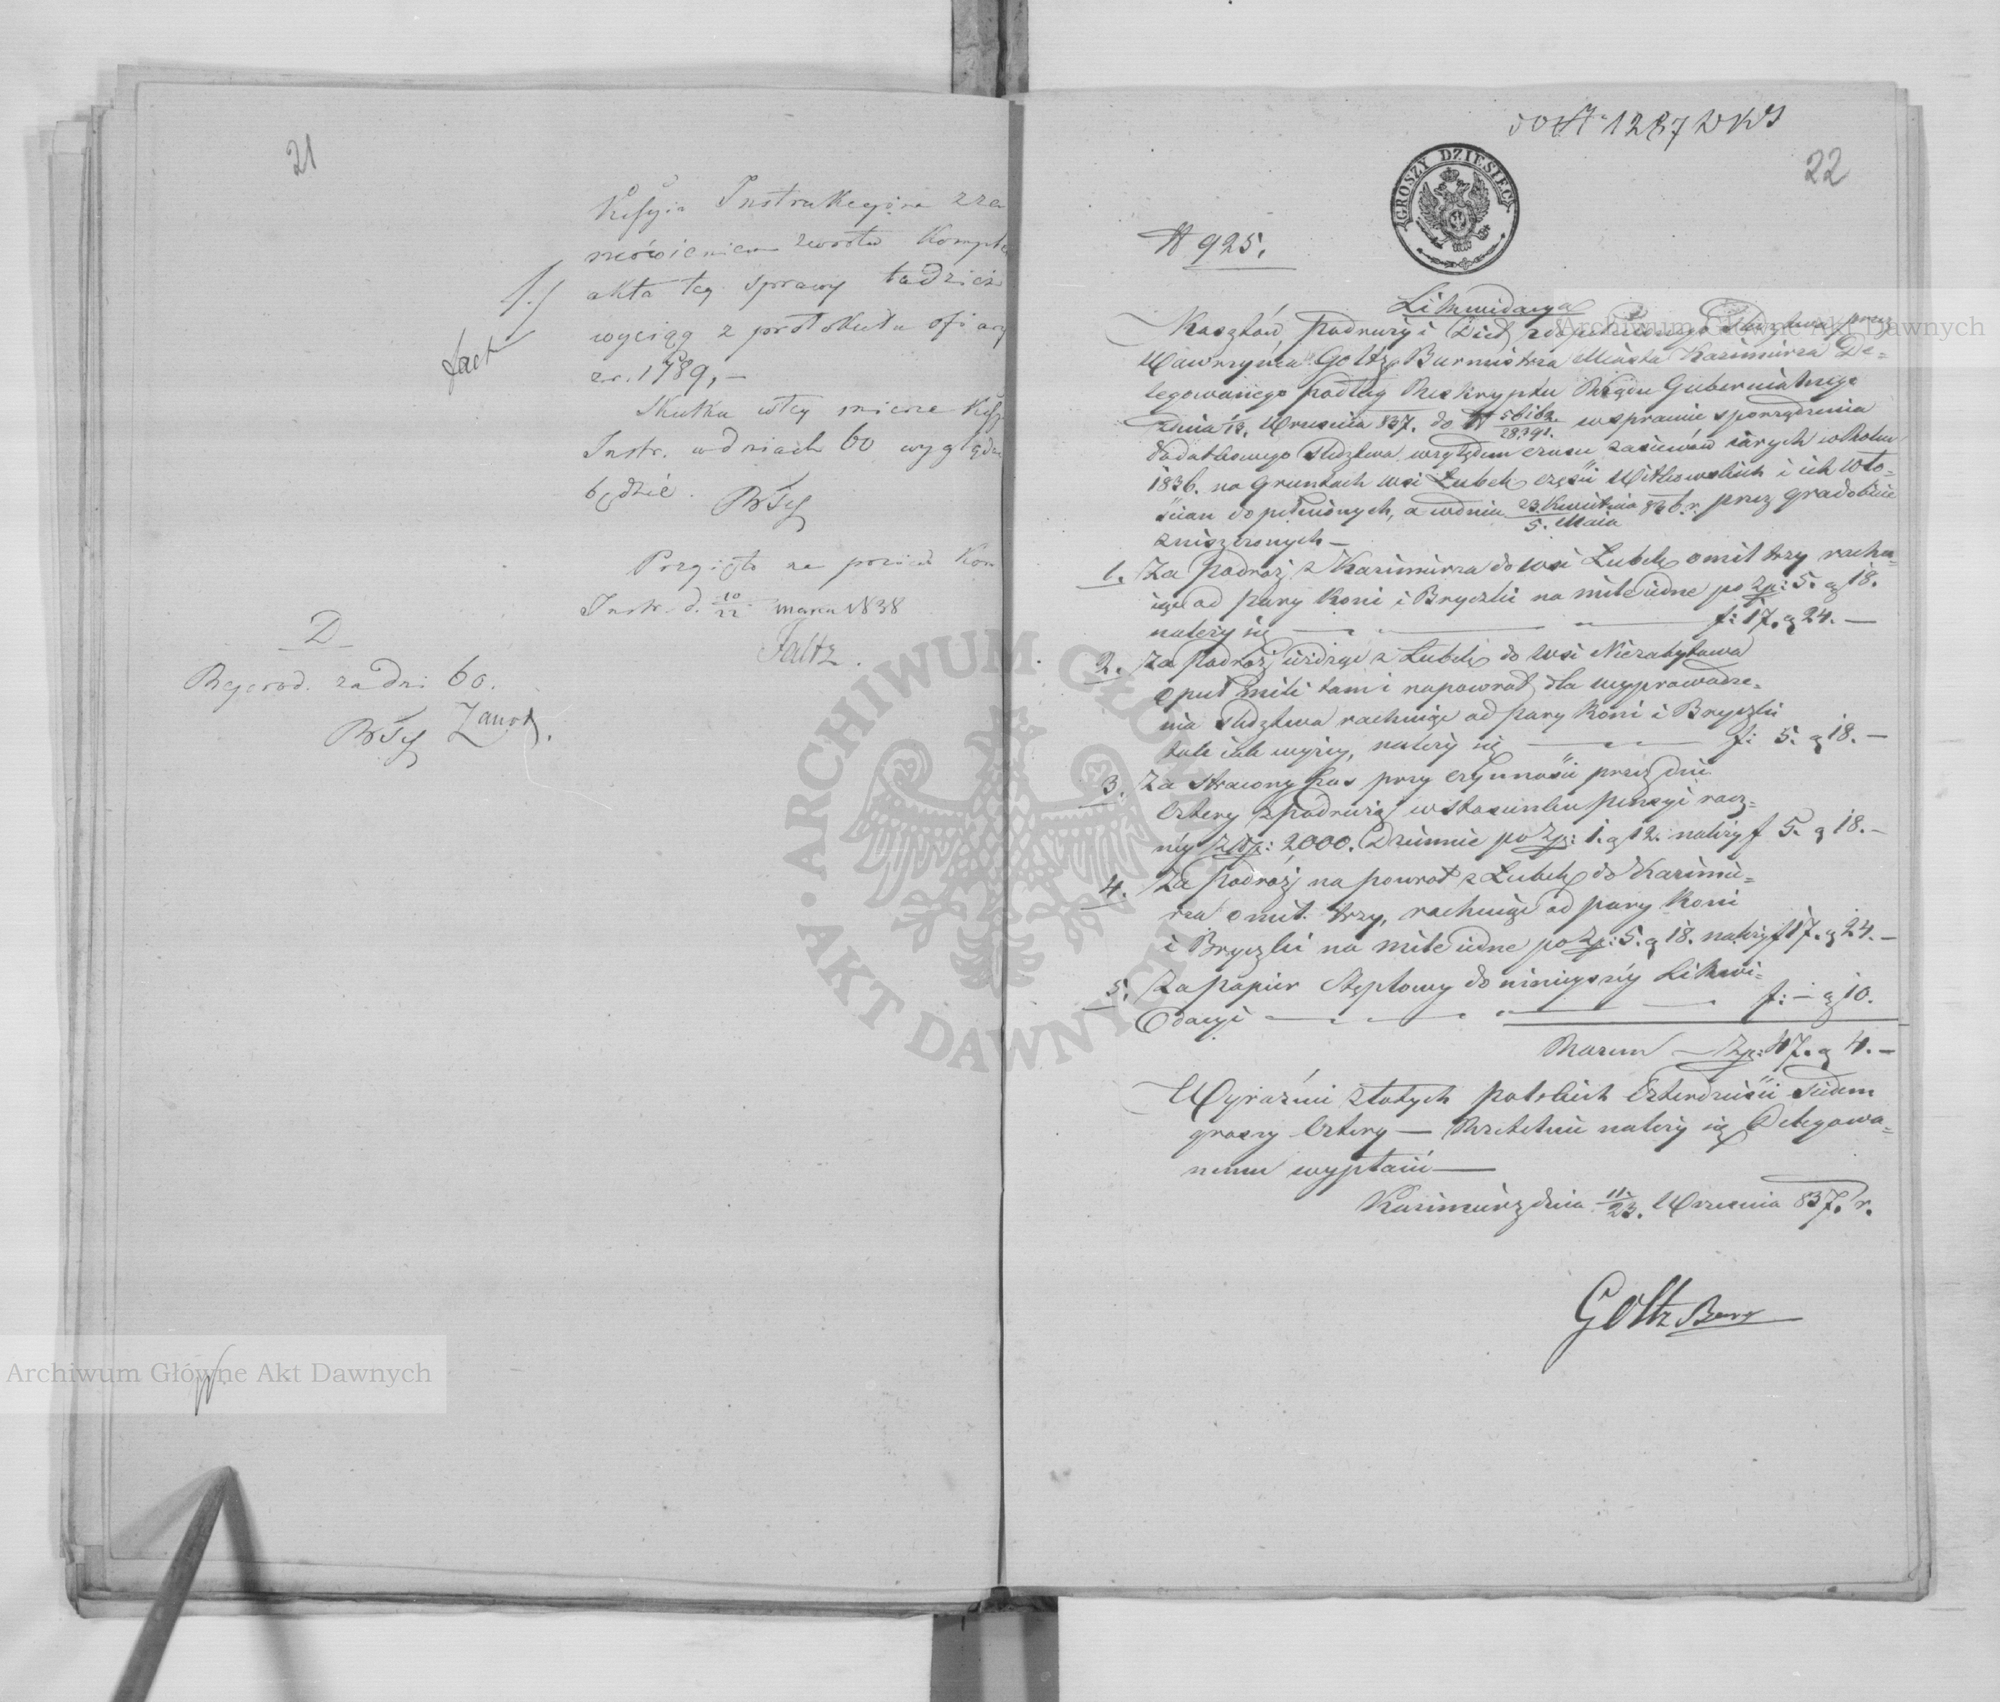 21
Instrukcyjna
mówieniem zwrotu Komple
akta tey sprawy tudzież
wyciąg z protokułu ofiary
z r. 1789, —
Skutku w tey mierze
Instr. w dniach 60 wygląda
będzie.
Przyięto na posiedz Kom
Instr. d. 10/22 marca 1838
Faltz.
D
Reprod. za dni 60.
Archiwum Główne Akt Dawnych
do N 1287
22
GROSZY DZIESIĘĆ
N 925.
Likwidacya
Archiwum Główne Akt Dawnych
Kosztów, podruży i Diet z dopełnionego Śledztwa przez
Wawrzyńca Goltz Burmistrza Miasta Kazimierza De=
legowanego podług Reskryptu Rządu Gubernialnego
dnia 13. Września 837. do N w sprawie sporządzenia
dodatkowego Śledztwa względem czasu zasiewów iarych w Roku
1836. na gruntach wsi Łubek części Witkowskich i ich Wło=
ścian dopełnionych, a w dniu 23. Kwietnia/5. Maia 836. r. przez gradobicie
zniszczonych —
1. Za Podróż z Kazimierza do wsi Łubek o mil trzy rachu
iąc od pary Koni i Bryczki na milę iedne po Zp: 5. g 18.
należy się — f: 17. g 24. —
2. Za Podróż iezdząc z Łubek do wsi Niezabytowa
o puł mili tam i napowrot, dla wyprowadze=
nia Śledztwa rachuiąc od pary Koni i Bryczki
tak iak wyżey, należy się — f: 5. g 18. —
3. Za stracony czas przy czynności przez dni
cztery z podrużą w stosunku pensyi rocz=
ney Złp: 2000. Dziennie po Zp: 1. g 12. należy f 5. g 18. —
4. Za Podróż na powrot z Łubek do Kazimie=
rza o mil trzy, rachuiąc od pary Koni
i Bryczki na milę iedne po Zp: 5. g 18. należy f 17. g 24. —
5. Za papier Stęplowy do ninieyszey Likwi=
dacyi — f: — g 10.
Razem — Zp: 47. g 4. —
Wyraźnie złotych polskich Czterdzieści Siedem
groszy Cztery — Rzetelnie należy się Delegowa=
nemu wypłacić —
Kazimierz dnia 11/23. Września 837. r.
Goltz Burm
ARCHIWUM GŁÓWNE AKT DAWNYCH